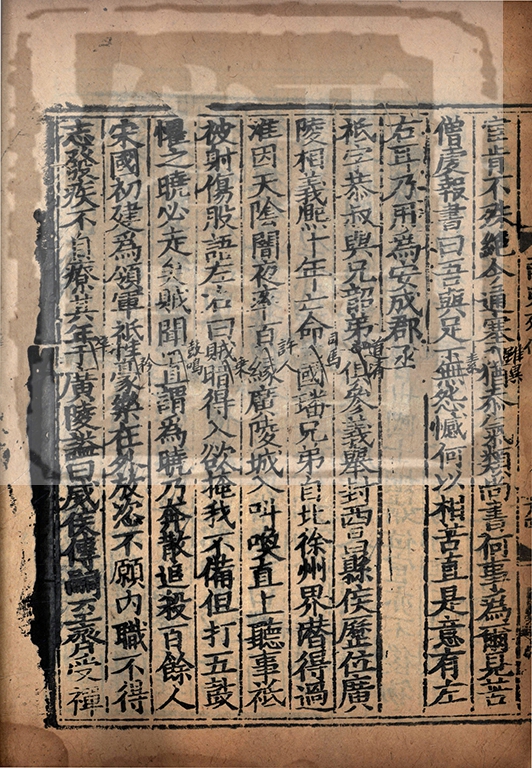 官肯不殊絕今通塞雖異猶忝氣類尚書何事為爾見苦
僧虔報書曰吾與足下素無怨憾何以相苦直是意有左
右耳乃用為安成郡丞
祗字恭叔與兄韶弟道濟俱參義舉封西昌縣侯歷位廣
陵相義熙十年亡命司馬國璠兄弟自北徐州界潛得過
淮因天陰闇夜率百許人緣廣陵城入叫喚直上聽事祗
被射傷股語左右曰賊乘暗得入欲掩我不備但打五鼓
懼之曉必走矣賊聞鼓鳴直謂為曉乃奔散追殺百餘人
宋國初建為領軍祗性矜豪樂在外放恣不願內職不得
志發疾不自療其年卒于廣陵謚曰威侯傳嗣至齊受禪